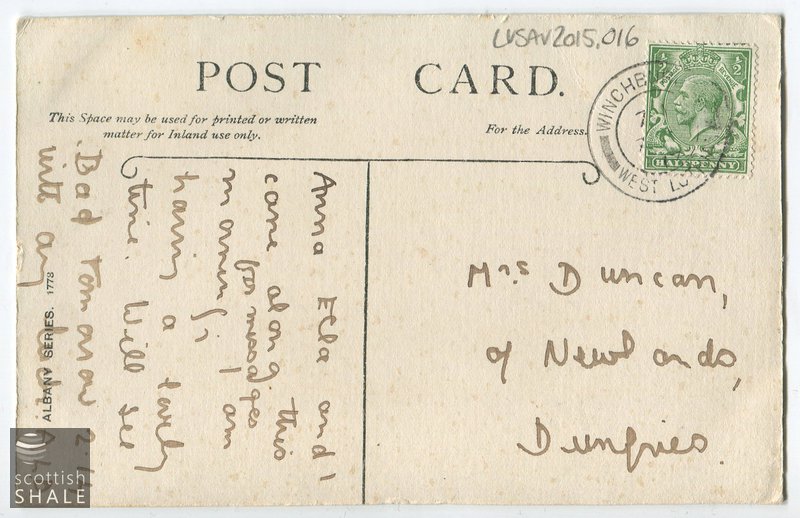 LVSAV2015.016
POST CARD.
This Space may be used for printed or written
matter for Inland use only.
For the Address.
HALFPENNY
WEST
Mrs Duncan,
of Newlands,
Dumfries.
Anna Ella and I
came along this
for messages
morning; I am
having a lovely
time. Will see
Bad tomorow
with any
ALBANY SERIES. 1773
scottish
SHALE